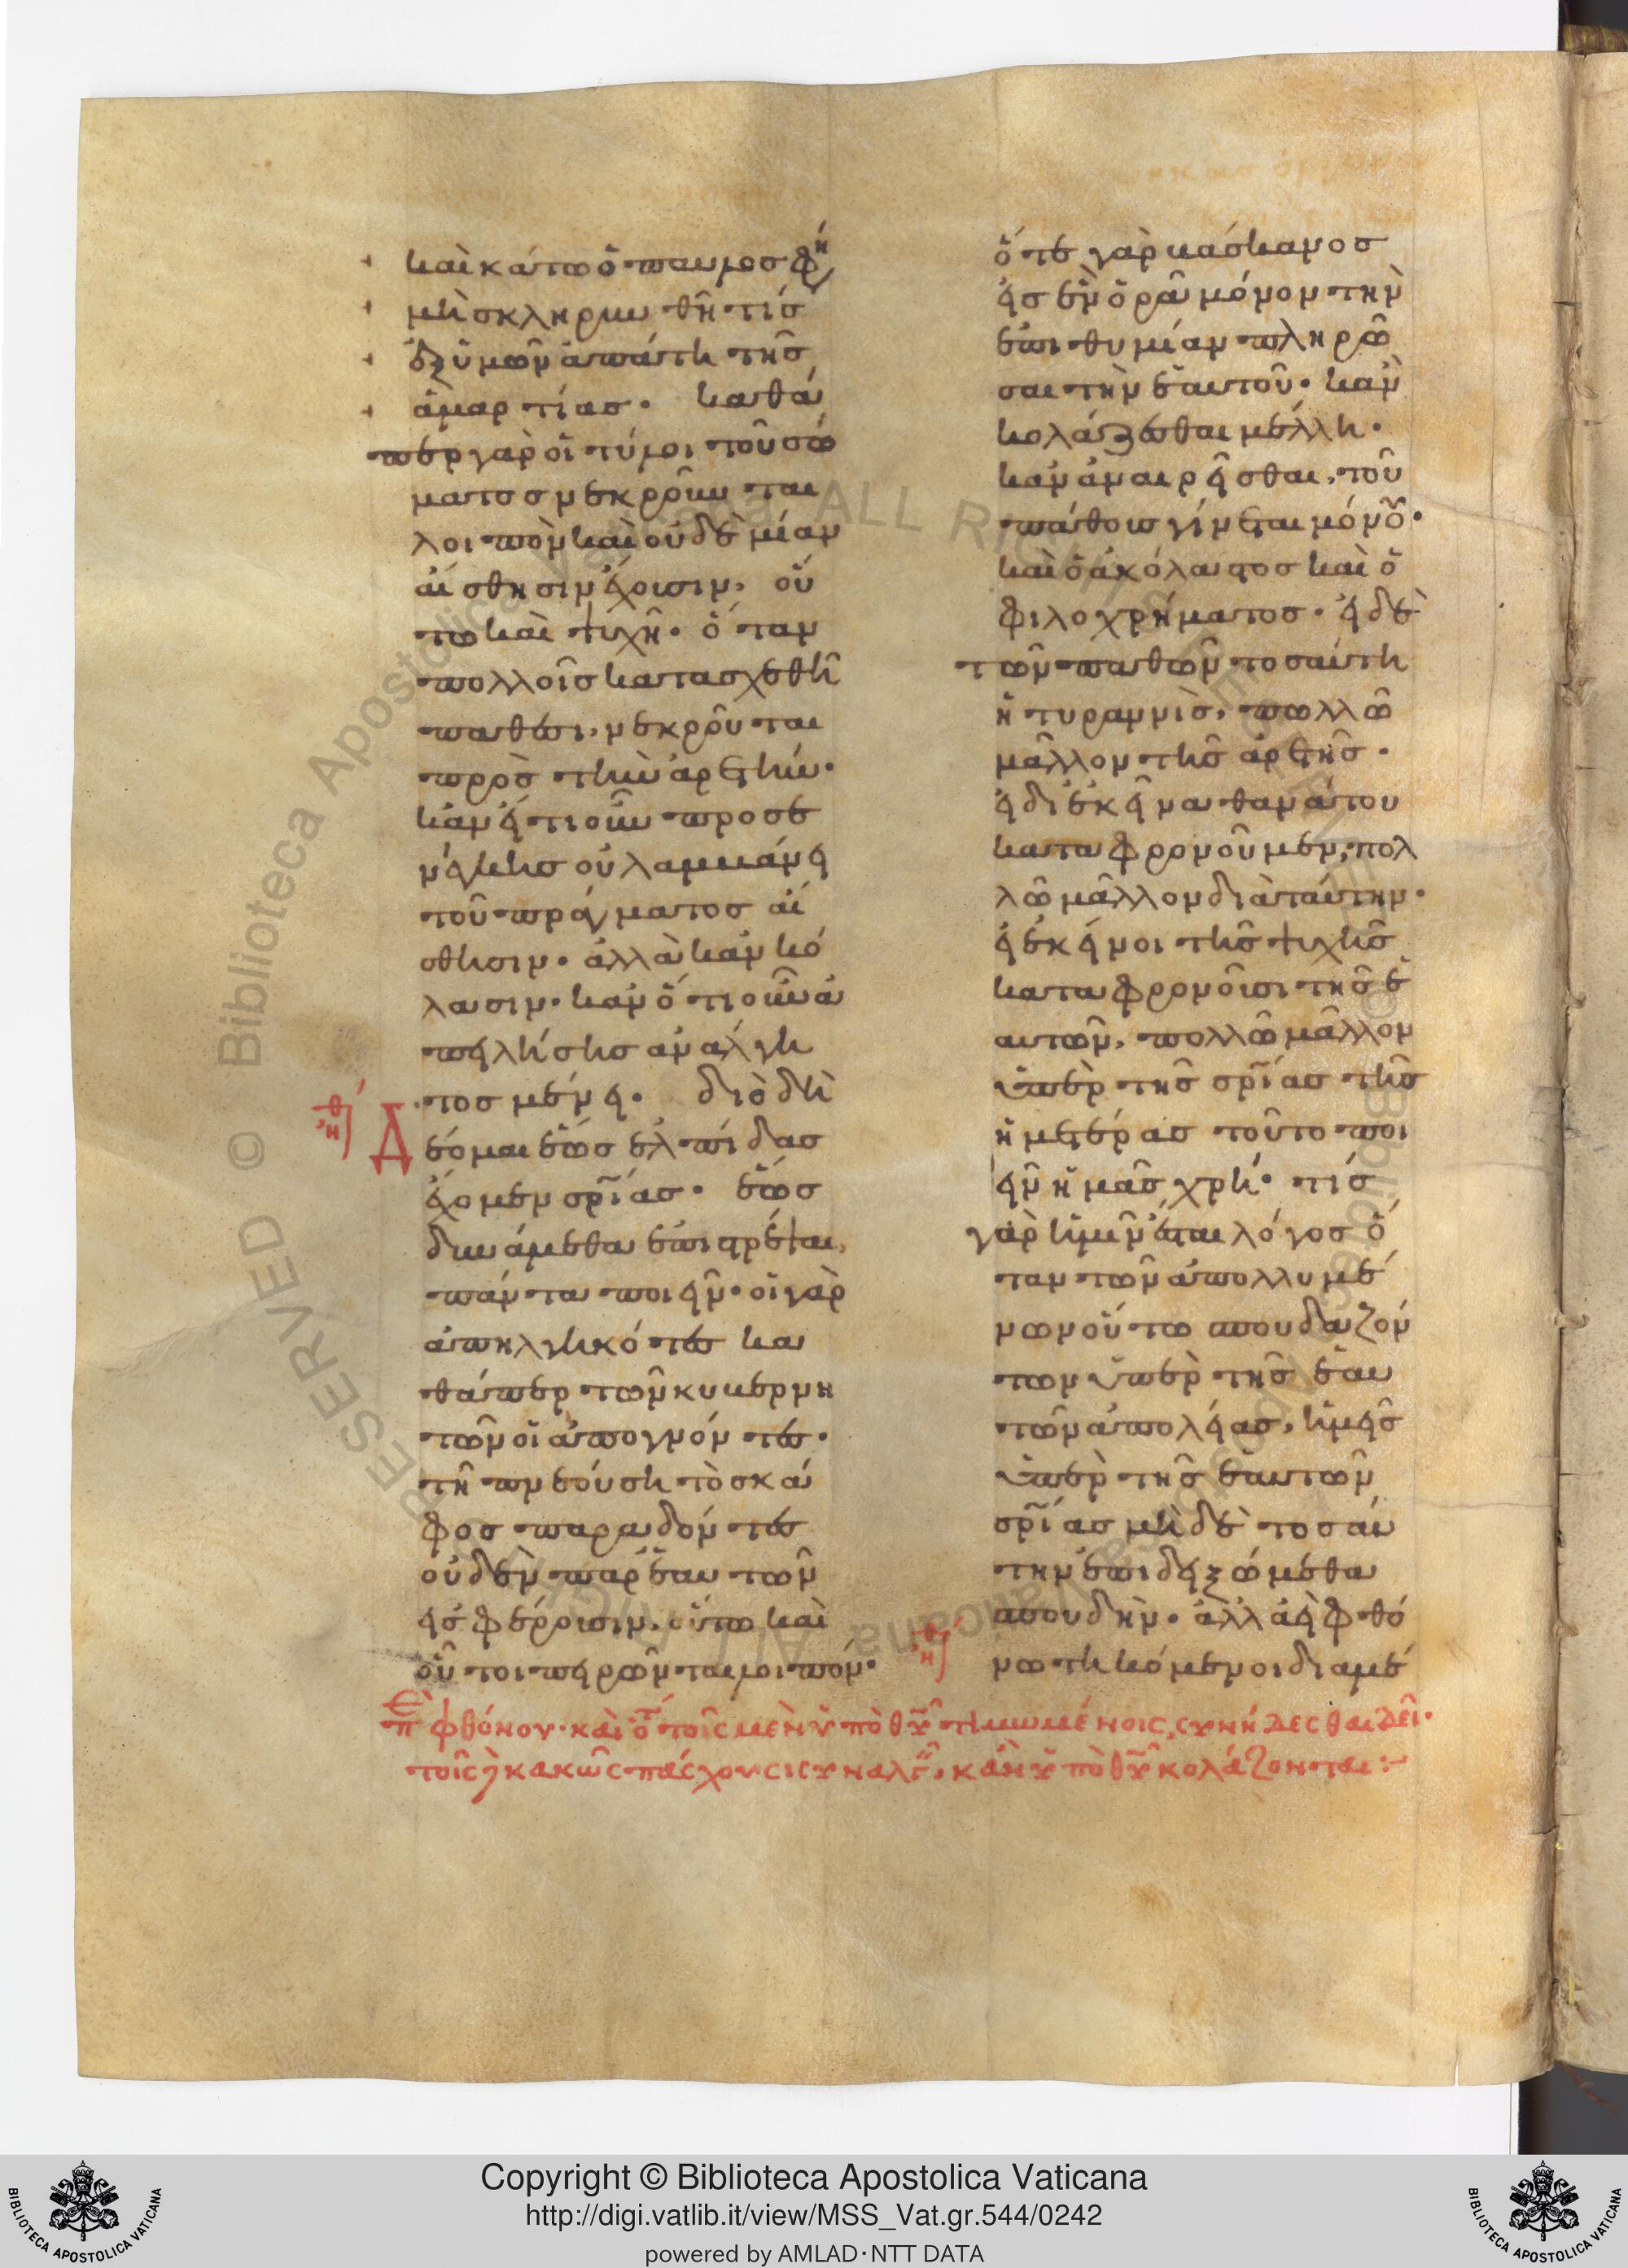 καὶ κάτω ὁ παῦλος φη
μὴ σκληρυνθῆ τίς
ἐξ ὑμῶν ἀπάτη τῆς
ἁμαρτίας. καθά
περ γὰρ οἱ τύλοι τοῦ σώ
ματος νεκροῦνται
λοιπὸν καὶ οὐδὲ μίαν
αἴσθησιν ἔχουσιν, οὕ
τω καὶ ψυχὴ. ὅταν
πολλοῖς κατασχεθῆ
πάθεσι, νεκροῦται
πρὸς τὴν ἀρετήν.
κἂν εἴ τι οὖν προσε
νέγκης οὐ λαμβάνει
τοῦ πράγματος αἴ
σθησιν. ἀλλὰ κἂν κό
λασιν. κἂν ὅτι οὖν ἀ
πειλήσης ἀνάλγη
τος μένει. διὸ δὴ
Δέομαι ἕως ἐλπίδας
ἔχομεν σρίας. ἕως
δυνάμεθα ἐπιστρέψαι,
πάντα ποιεῖν. οἱ γὰρ
ἀπηλγηκότες κα
θάπερ τῶν κυβερνη
τῶν οἱ ἀπογνόντες.
τῆ πνεούση τὸ σκά
φος παραδόντες
οὐδὲν παρ' ἑαυτῶν
εἰσφέρουσιν, οὕτω καὶ
οὗτοι πειρῶνται λοιπόν.
ὅτε γὰρ βάσκανος
εἰς ἓν ὁρᾶ μόνον τὴν
ἐπιθυμίαν πληρῶ
σαι τὴν ἑαυτοῦ. κἂν
κολάζεσθαι μέλλη.
κἂν ἀναιρεῖσθαι, τοῦ
πάθους γίνεται μόνου.
καὶ ὁ ἀκόλαστος καὶ ὁ
φιλοχρήματος. εἰ δὲ
τῶν παθῶν τοσαύτη
ἡ τυραννὶς, πολλῶ
μᾶλλον τῆς ἀρετῆς.
εἰ δι' ἐκεῖνα θανάτου
καταφρονοῦμεν, πολ
λῶ μᾶλλον διὰ ταύτην.
εἰ ἐκεῖνοι τῆς ψυχῆς
καταφρονοῦσι τῆς ἑ
αυτῶν, πολλῶ μᾶλλον
ὑπὲρ τῆς σρίας τῆς
ἡμετέρας τοῦτο ποι
εῖν ἡμᾶς χρή. τίς
γὰρ ἡμῖν ἔσται λόγος ὅ
ταν τῶν ἀπολλυμέ
νων οὕτω σπουδαζόν
των ὑπὲρ τῆς ἑαυ
τῶν ἀπολείας, ἡμεῖς
ὑπὲρ τῆς ἑαυτῶν
σρίας μὴ δὲ τοσαύ
την ἐπιδειξώμεθα
σπουδήν. ἀλλ' ἀεὶ φθό
νω τηκόμενοι διαμέ
Ἐπὶ φθόνου. καὶ ὅτι τοῖς μὲν ὑπὸ θυ τιμωμένοις συνήδεσθαι δεῖ.
τοῖς δὲ κακῶς πάσχουσι συναλγεῖν, κἂν ὑπὸ θυ κολάζονται:
Copyright © Biblioteca Apostolica Vaticana
http://digi.vatlib.it/view/MSS_Vat.gr.544/0242
powered by AMLAD·NTT DATA